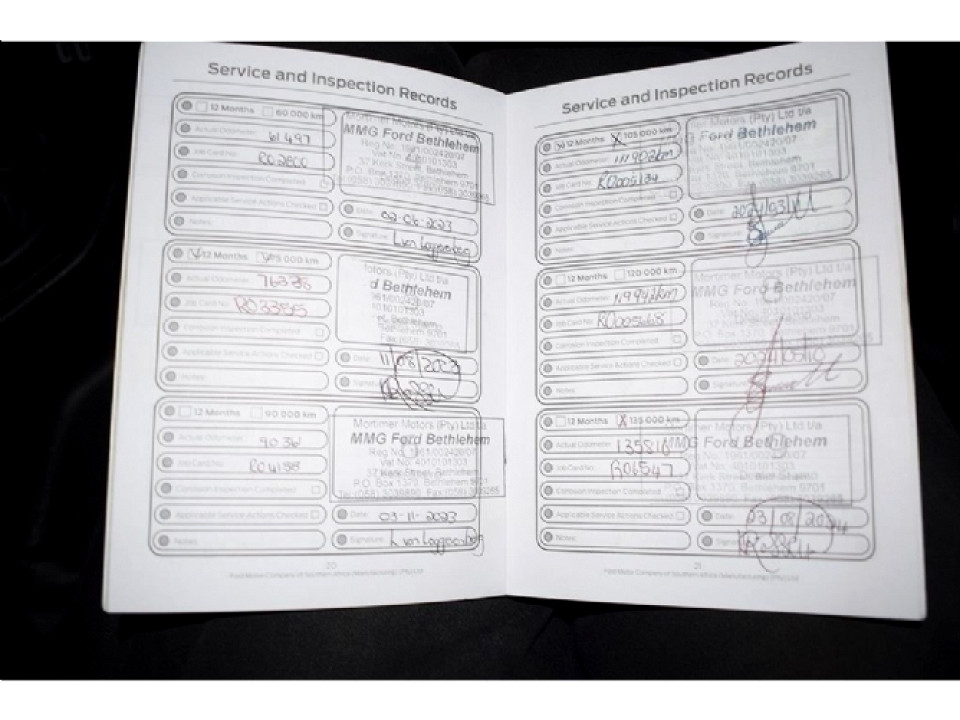 Service and Inspection Records
12 Months 60 000 km
Actual Odometer: 61 497
Job Card No: RO2800
Corrosion Inspection Completed
Applicable Service Actions Checked
Notes:
Mortimer Motors (Pty) Ltd t/a
MMG Ford Bethlehem
Reg No: 1961/002420/07
Vat No: 4010101303
37 Kerk Street, Bethlehem
P.O. Box 1370, Bethlehem 9701
Date: 02-06-2023
Signature:
12 Months 75 000 km
Actual Odometer: 76
Job Card No: RO3355
Corrosion Inspection Completed
Applicable Service Actions Checked
Notes:
Motors (Pty) Ltd t/a
d Bethlehem
1961/002420/07
4010101303
Bethlehem
Bethlehem 9701
Date: 11/08/2023
Signature:
12 Months 90 000 km
Actual Odometer: 90 361
Job Card No: RO4158
Corrosion Inspection Completed
Applicable Service Actions Checked
Notes:
Mortimer Motors (Pty) Ltd t/a
MMG Ford Bethlehem
Reg No: 1961/002420/07
Vat No: 4010101303
37 Kerk Street, Bethlehem
P.O. Box 1370, Bethlehem 9701
Tel: (058) 3039890 Fax: (058) 3039265
Date: 03-11-2023
Signature:
20
Ford Motor Company of Southern Africa (Manufacturing) (Pty) Ltd
Service and Inspection Records
12 Months 105 000 km
Actual Odometer: 111902km
Job Card No:
Corrosion Inspection Completed
Applicable Service Actions Checked
Notes:
Mortimer Motors (Pty) Ltd t/a
Ford Bethlehem
1961/002420/07
4010101303
Street, Bethlehem
1370, Bethlehem 9701
Date: 2024/03/11
Signature:
12 Months 120 000 km
Actual Odometer: 119942km
Job Card No: RO005668
Corrosion Inspection Completed
Applicable Service Actions Checked
Notes:
Mortimer Motors (Pty) Ltd t/a
MMG Ford Bethlehem
Reg No: 1961/002420/07
Vat No: 4010101303
P.O. Box 1370, Bethlehem 9701
Date: 2024/05/10
Signature:
12 Months 135 000 km
Actual Odometer: 135816
Job Card No: RO6547
Corrosion Inspection Completed
Applicable Service Actions Checked
Notes:
Mortimer Motors (Pty) Ltd t/a
MMG Ford Bethlehem
Reg No: 1961/002420/07
Vat No: 4010101303
Box 1370, Bethlehem 9701
Date: 23/08/2024
Signature:
21
Ford Motor Company of Southern Africa (Manufacturing) (Pty) Ltd